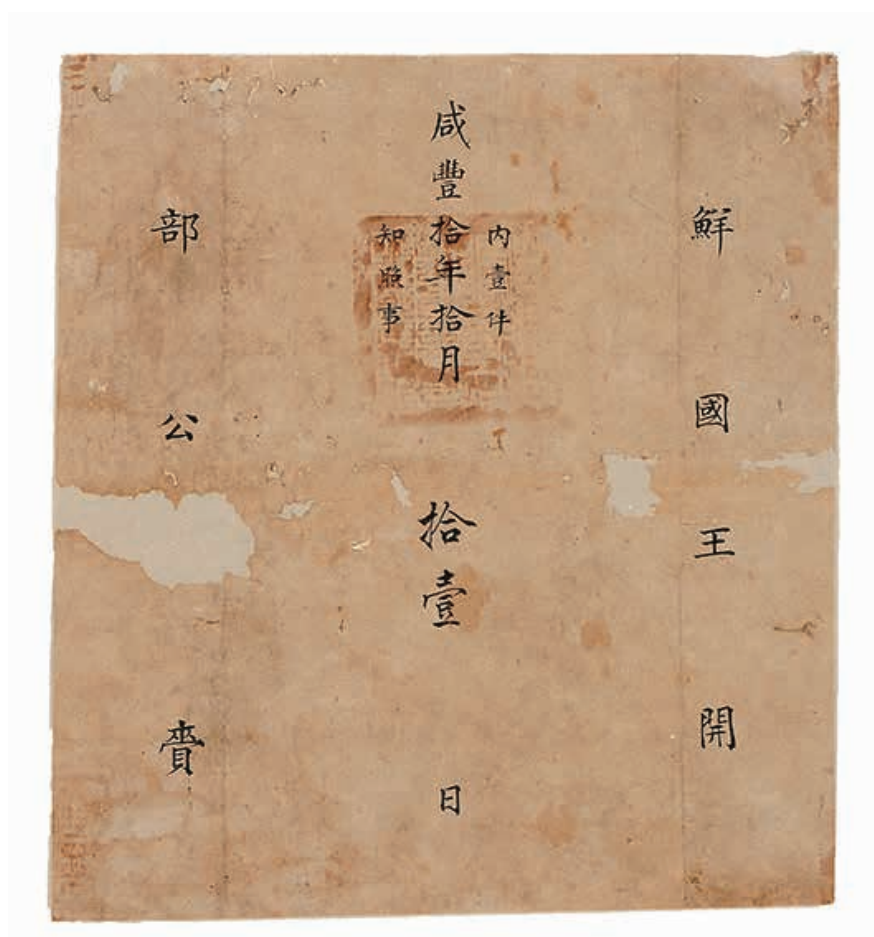 鮮國王開
內壹件
咸豐拾年拾月拾壹日
知照事
部公賫